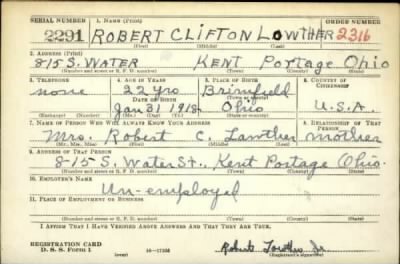 SERIAL NUMBER 1. NAME (Print) ORDER NUMBER
2291 ROBERT CLIFTON LOWTHER 2316
(First) (Middle) (Last)
2. ADDRESS (Print)
815 S. WATER KENT Portage Ohio
(Number and street or R. F. D. number) (Town) (County) (State)
3. TELEPHONE 4. AGE IN YEARS 5. PLACE OF BIRTH 6. COUNTRY OF CITIZENSHIP
none 22 yrs Brimfield
DATE OF BIRTH (Town or county)
Jan 31 1918 Ohio U.S.A.
(Exchange) (Number) (Mo.) (Day) (Yr.) (State or country)
7. NAME OF PERSON WHO WILL ALWAYS KNOW YOUR ADDRESS 8. RELATIONSHIP OF THAT PERSON
Mrs. Robert C. Lowther mother
(Mr., Mrs., Miss) (First) (Middle) (Last)
9. ADDRESS OF THAT PERSON
815 S. Water St., Kent Portage Ohio.
(Number and street or R. F. D. number) (Town) (County) (State)
10. EMPLOYER'S NAME
Un-employed
11. PLACE OF EMPLOYMENT OR BUSINESS
(Number and street or R. F. D. number) (Town) (County) (State)
I AFFIRM THAT I HAVE VERIFIED ABOVE ANSWERS AND THAT THEY ARE TRUE.
REGISTRATION CARD
D. S. S. Form 1 (over) Robert Lowther Jr.
(Registrant's signature)